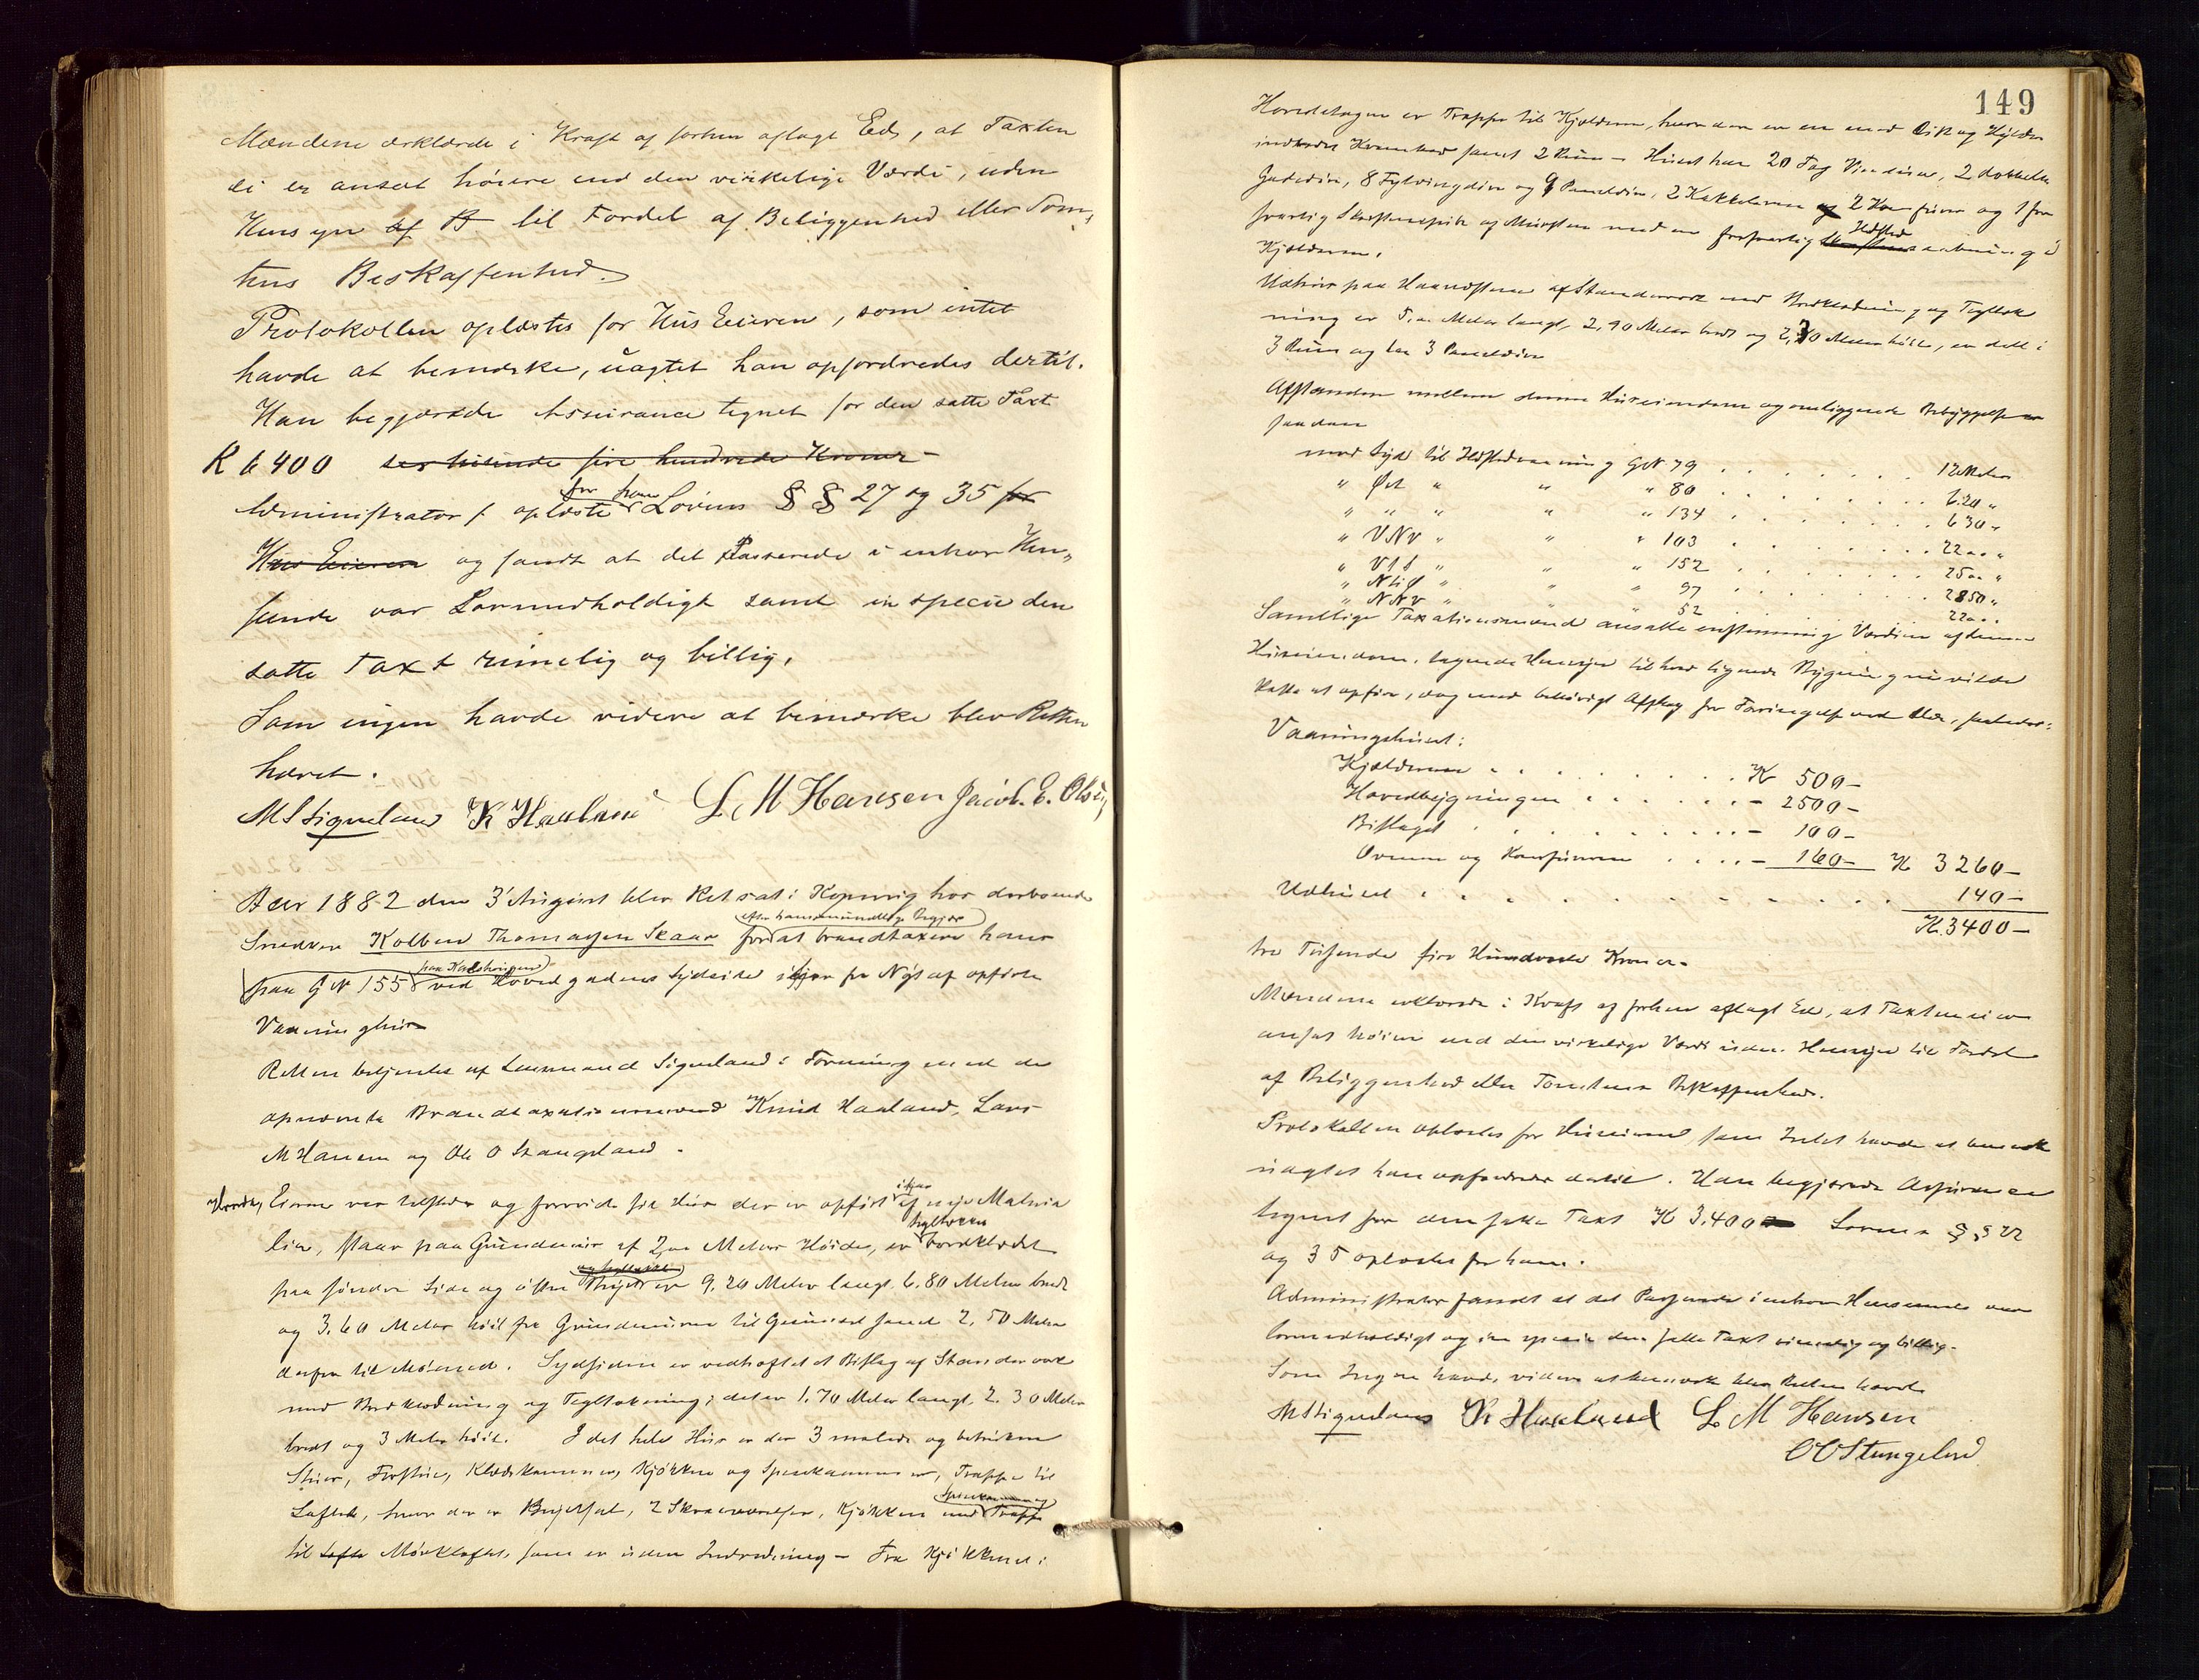 Mændene erklærede i Kraft af forhen aflagt Ed, at Taxten
ei er ansat høiere end den virkelige Værdi, uden
Hensyn til Fordel af Beliggenhed eller Tom-
tens Beskaffenhed.
Protokollen oplæstes for Hus Eieren, som intet
havde at bemærke, uagtet han opfordredes dertil.
Han begjærede Assurance tegnet for den satte Taxt
K 6400 sex tusinde fire hundrede Kroner –
Administrator oplæste for ham Lovens §§ 27 og 35 for
Hus Eieren og fandt at det Passerede i enhver Hen-
seende var Lovmedholdigt samt in specie den
satte Taxt rimelig og billig.
Som ingen havde videre at bemærke blev Retten
hævet.
M S Siqveland K Haaland L M Hansen Jacob. E. Olsen
Aar 1882 den 3 August blev Ret sat i Kopervig hos derboende
efter hans mundtlige begjær
Snedker Kolben Thomassen Skaar for at brandtaxere hans
paa Karlshougens
paa G N 155 ved Hovedgadens Sydside ifjor fra Nyt af opførte
Vaaninghus
Retten betjentes af Lensmand Siqveland i Forening med de
opnævnte Brandtaxationsmænd Knud Haaland, Lars
M Hansen og Ole O Stangeland.
Eieren var tilstede og foreviste sit Hus der er opført ifjor af nye Materia
lier, staar paa Grundmur af 2,00 Meters Høide, er tegltækket bordklædt
paa søndre Side og østre er 9.20 Meter langt, 6.80 Meter bredt
og 3.60 Meter høit fra Grundmuren til Gesimset samt 2.50 Meter
derfra til Mønet. Sydsiden er vedhæftet et Bislag af Standerværk
med Bordklædning og Tegltækning; det er 1.70 Meter langt, 2.30 Meter
bredt og 3 Meter høit. I det hele Hus er der 3 malede og betrukne
Stuer, Forstue, Klædekammer, Kjøkken og Spisekammer, Trappe til
Loftet, hvor der er 2 Skraaværelser, Kjøkken med Spisekammer og Trappe
til Mørkloftet, som er uden Indredning – Fra Kjøkkenet i
149
Hovedetagen er Trappe til Kjælderen, hvor der er en med Disk og Hylder
indredet Krambod samt 2 Rum – Huset har 20 Fag Vinduer, 2 dobbelte
Gadedøre, 8 Fyldingsdøre og 9 Paneldøre, 2 Kakkelovne 2 Komfurer og 1 for
svarlig Skorstenspibe af Mursten med en forsvarlig Ildsted i
Kjælderen.
Udhus paa af Standerværk med Bordklædning og Tegltæk
ning er 5,00 Meter langt, 2,90 Meter bredt og 2,30 Meter høit, er delt i
3 Rum og har 3 Paneldøre
Afstanden mellem denne Huseiendom og omliggende Bebyggelse er
saadan
mod Syd til Ildstedsvaaning G N 79 . . . . . . 12 Meter
" Øst " " " 80 . . . . . . 6.20 "
" " " " " 134 . . . . . . 6 30 "
" VNV " " " 103 . . . . . . 22 00 "
" V " " " 152 . . . . . . 25 00 "
" N " " " 97 . . . . . . 28 50 "
" NNV " " " 52 . . . . . . 22 00 "
Samtlige Taxationsmænd ansatte enstemmig Værdien af denne
Huseiendom, tagende Hensyn til hvad lignende Bygning nu vilde
koste at opføre, dog med behørigt Afslag for Forringelse ved Ælde, saaledes:
Vaaningshuset:
Kjælderen . . . . . . K 500 –
Hovedbygningen . . . . . . – 2500 –
Bislaget . . . . . . – 100 –
Ovnene og Komfurerne . . . . – 160 – K 3260 –
Udhuset . . . . . . 140 –
K. 3400 –
tre Tusende fire Hundrede Kroner.
Mændene erklærede i Kraft af forhen aflagt Ed, at Taxten ei er
ansat høiere end den virkelige Værdi uden Hensyn til Fordel
af Beliggenhed eller Tomtens Beskaffenhed.
Protokollen oplæstes for Huseieren som Intet havde at bemærke
uagtet han opfordredes dertil. Han begjærede Assurance
tegnet for den satte Taxt K 3.400 Lovens §§ 27
og 35 oplæstes for ham.
Administrator fandt at det Passerede i enhver Henseende var
lovmedholdigt og in specie den satte Taxt rimelig og billig.
Som Ingen havde videre at bemærke blev Retten hævet.
M S Siqveland K Haaland L M Hansen
O O Stangeland